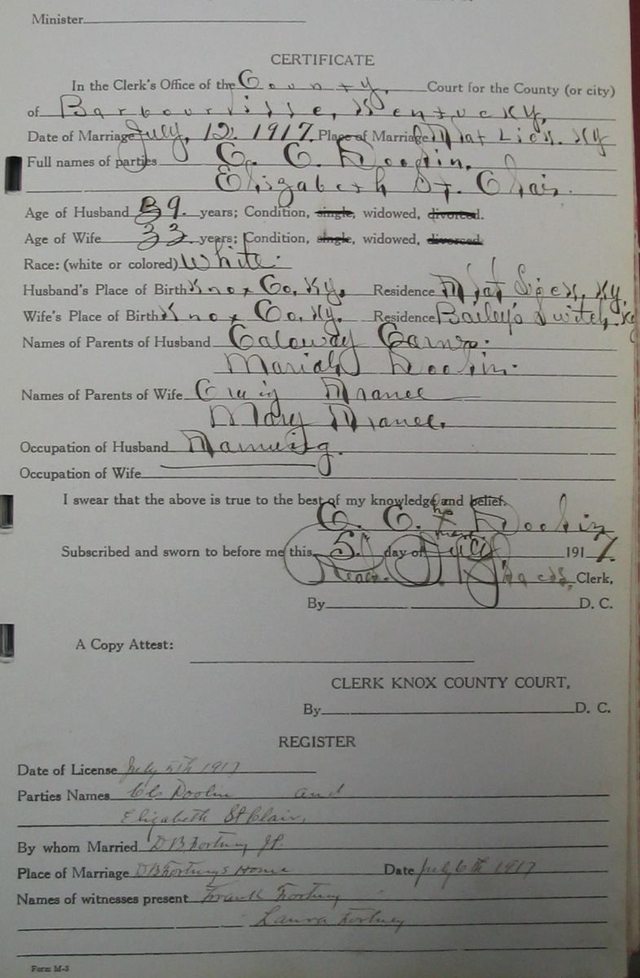 Minister
CERTIFICATE
In the Clerk's Office of the County, Court for the County (or city)
of Barbourville, Kentucky,
Date of Marriage July, 12. 1917. Place of Marriage Flat Lick. Ky
Full names of parties C. C. Doolin.
Elizabeth St. Clair.
Age of Husband 39. years; Condition, single, widowed, divorced.
Age of Wife 33 years; Condition, single, widowed, divorced
Race: (white or colored) White.
Husband's Place of Birth Knox Co, Ky. Residence Flat Lick, Ky.
Wife's Place of Birth Knox Co, Ky. Residence Bailey's Switch, Ky
Names of Parents of Husband Caloway
Mariah Doolin.
Names of Parents of Wife Craig
Mary
Occupation of Husband
Occupation of Wife
I swear that the above is true to the best of my knowledge and belief.
C. C. his x mark Doolin
Subscribed and sworn to before me this, 5. day of July 1917.
Clerk,
By D. C.
A Copy Attest:
CLERK KNOX COUNTY COURT,
By D. C.
REGISTER
Date of License July 5th 1917
Parties Names CC Doolin and
Elizabeth St Clair,
By whom Married D B Fortney JP.
Place of Marriage D B Fortneys Home Date July 6th 1917
Names of witnesses present Frank Fortney
Laura Fortney
Form M-3